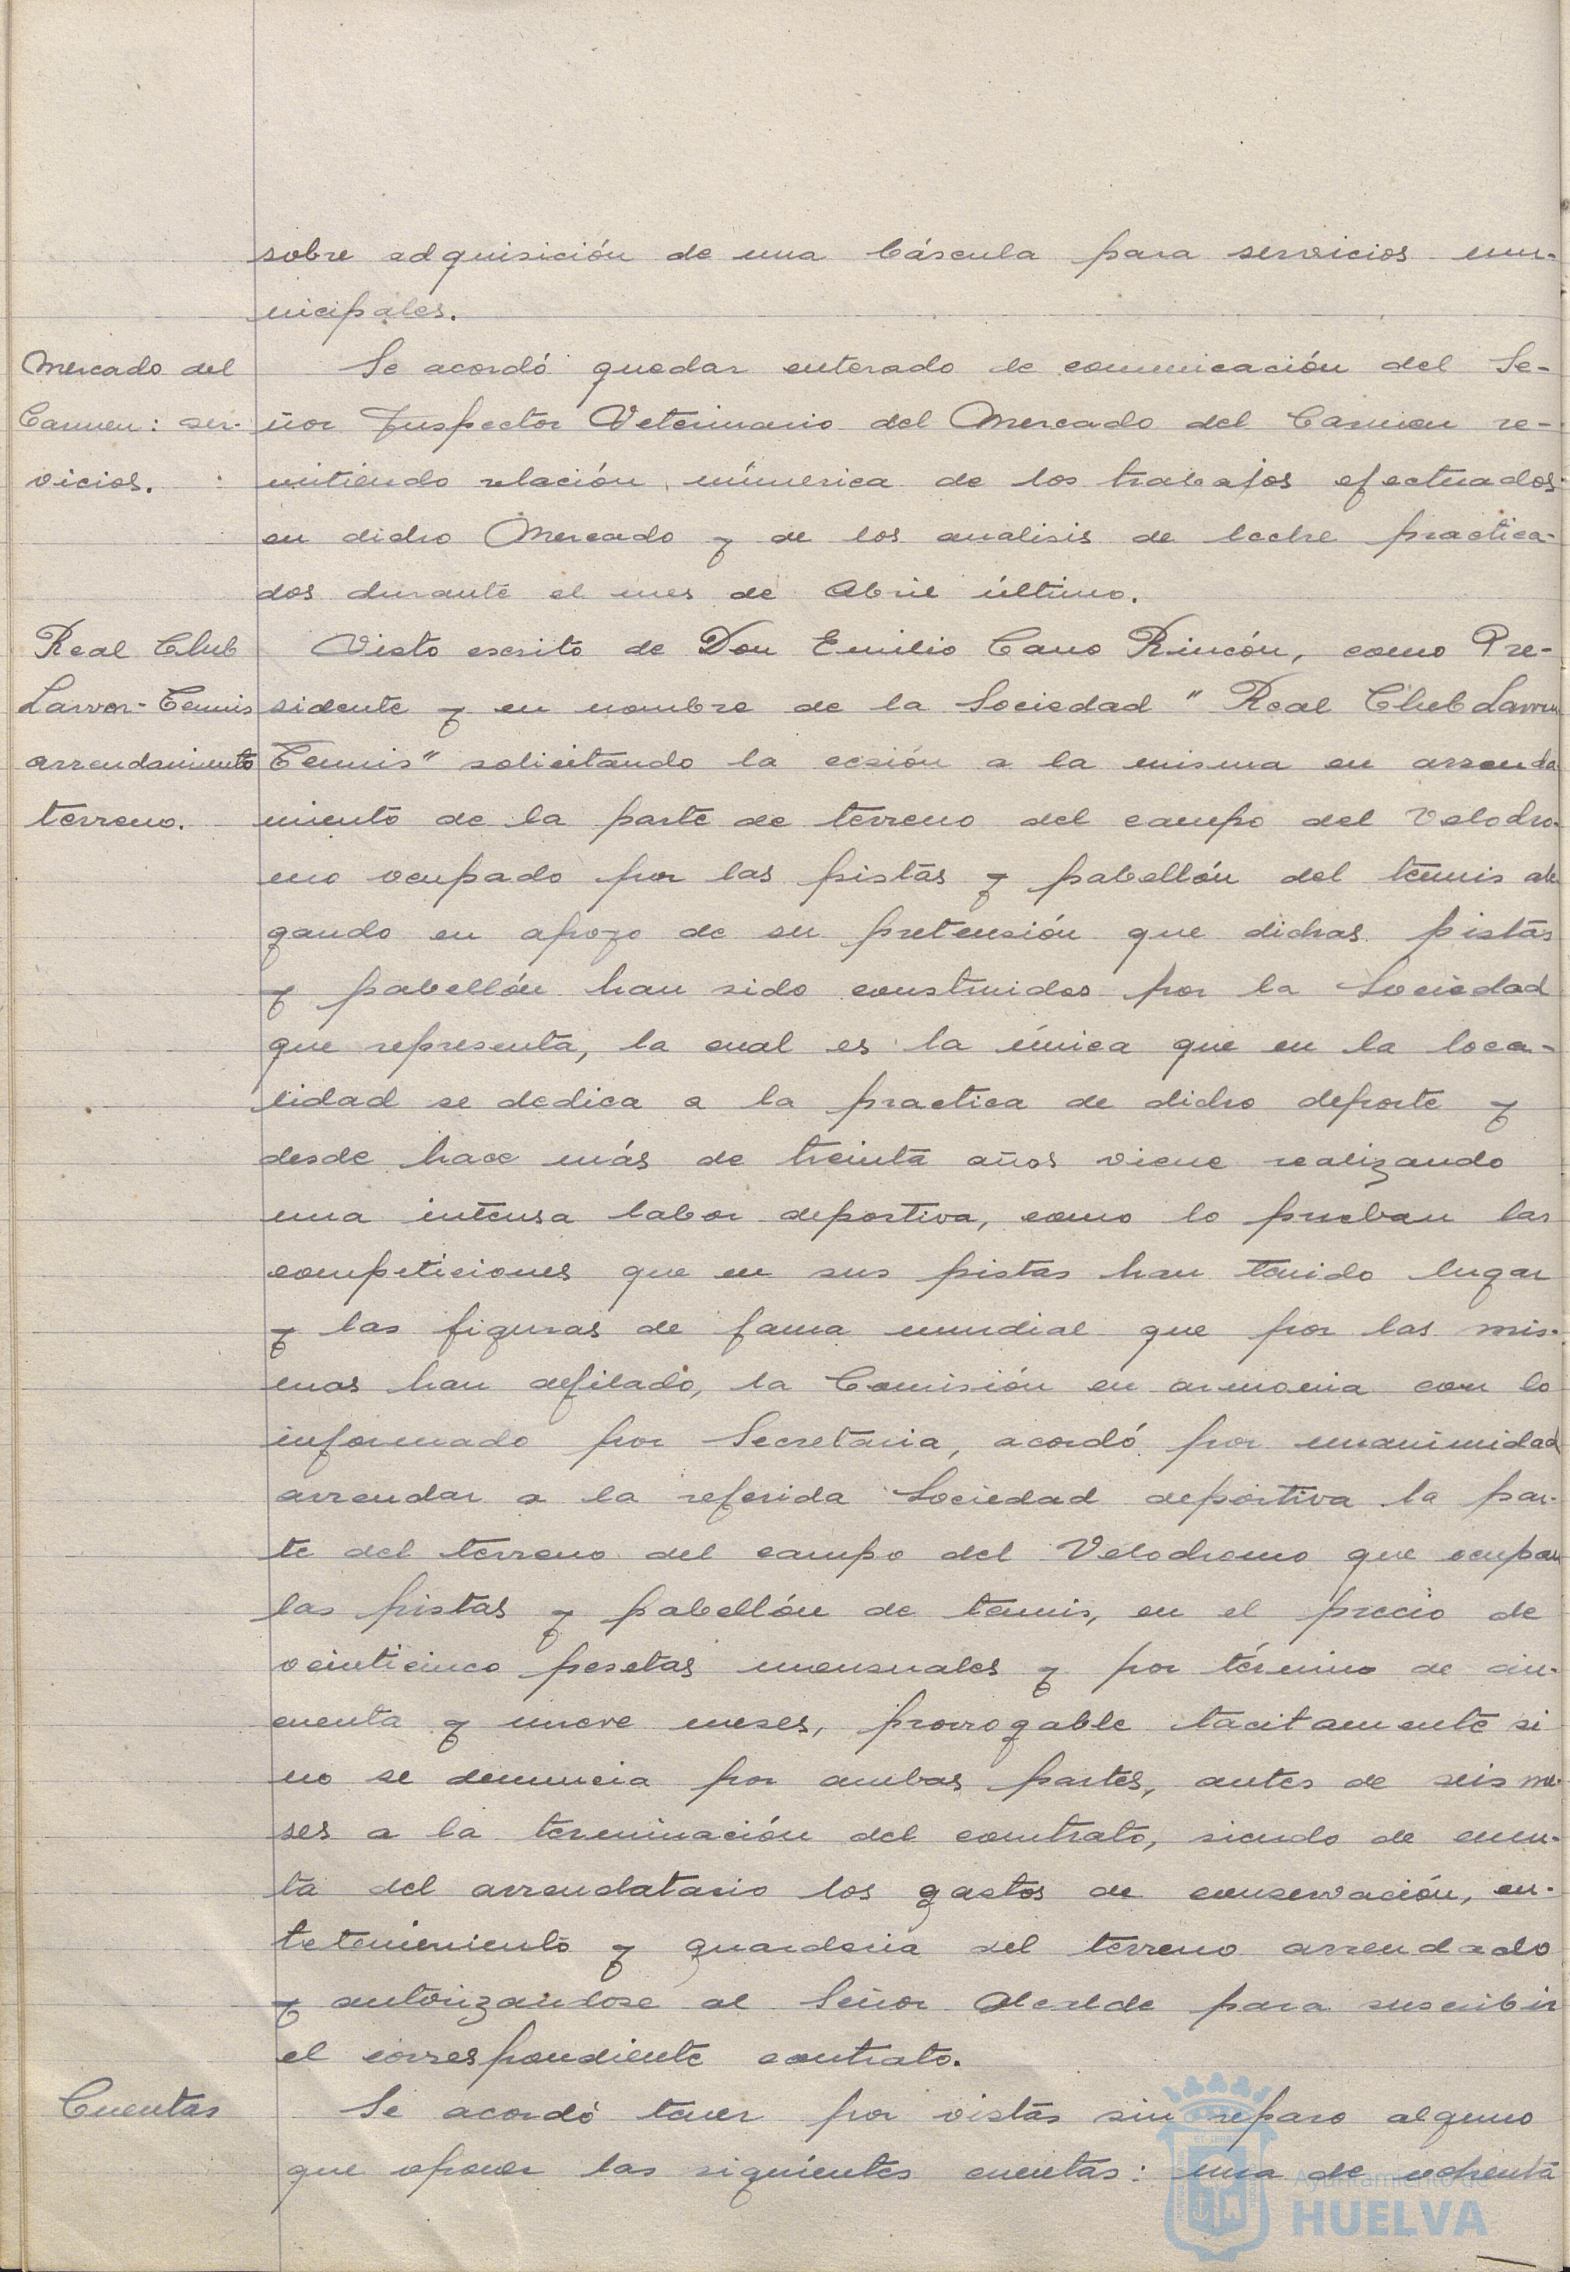 sobre adquisición de una báscula para servicios mu-
nicipales.
Mercado del
Carmen: ser-
vicios.
Se acordó quedar enterado de comunicación del Se-
ñor Inspector Veterinario del Mercado del Carmen re-
mitiendo relación númerica de los trabajos efectuados
en dicho Mercado y de los analisis de leche practica-
dos durante el mes de Abril último.
Real Club
Lawn-Tennis
arrendamiento
terreno.
Visto escrito de Don Emilio Cano Rincón, como Pre-
sidente y en nombre de la Sociedad "Real Club Lawn
Tennis" solicitando la cesión a la misma en arrenda
miento de la parte de terreno del campo del Velodro-
mo ocupado por las pistas y pabellón del tennis ale
gando en apoyo de su pretensión que dichas pistas
y pabellón han sido construidos por la Sociedad
que representa, la cual es la única que en la loca-
lidad se dedica a la practica de dicho deporte y
desde hace más de treinta años viene realizando
una intensa labor deportiva, como lo prueban las
competiciones que en sus pistas han tenido lugar
y las figuras de fama mundial que por las mis-
mas han defilado, la Comisión en armonia con lo
informado por Secretaria, acordó por unanimidad
arrendar a la referida Sociedad deportiva la par-
te del terreno del campo del Velodromo que ocupan
las pistas y pabellón de tennis, en el precio de
veinticinco pesetas mensuales y por término de cin-
cuenta y nueve meses, prorrogable tacitamente si
no se denuncia por ambas partes, antes de seis me-
ses a la terminación del contrato, siendo de cuen-
ta del arrendatario los gastos de conservación, en-
tetenimiento y guarderia del terreno arrendado
y autorizandose al Señor Alcalde para suscribir
el correspondiente contrato.
Cuentas
Se acordó tener por vistas sin reparo alguno
que oponer las siguientes cuentas: una de ochenta
Ayuntamiento de
HUELVA